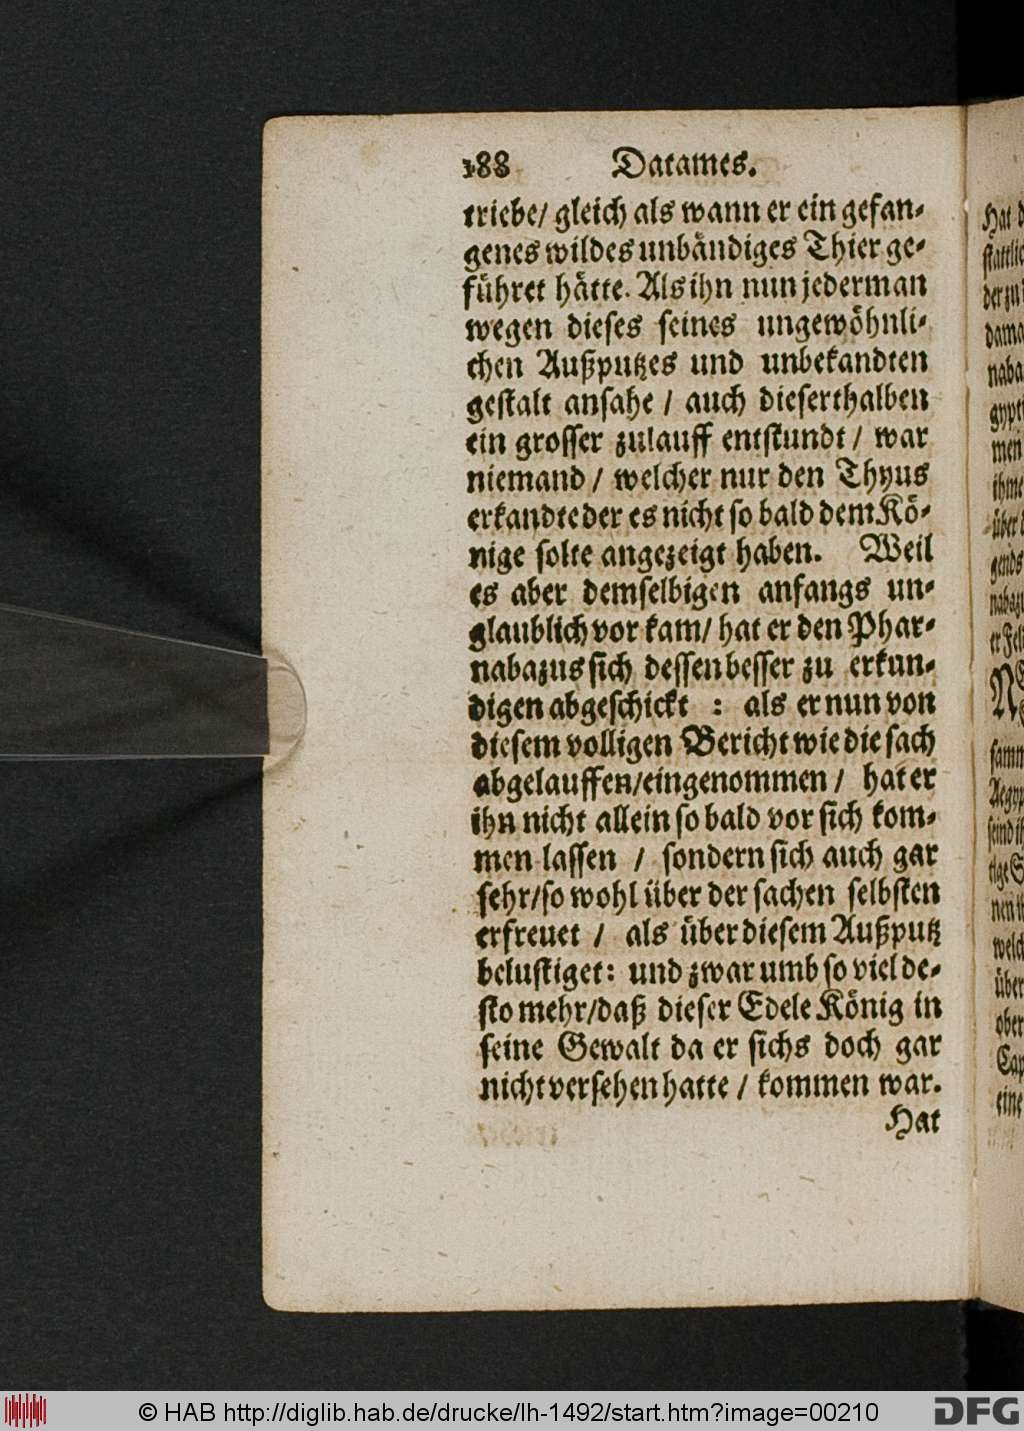 188 Datames.
triebe/ gleich als wann er ein gefan-
genes wildes unbändiges Thier ge-
führet hätte. Als ihn nun jederman
wegen dieses seines ungewöhnli-
chen Außputzes und unbekandten
gestalt ansahe / auch dieserthalben
ein grosser zulauff entstundt / war
niemand / welcher nur den Thyus
erkandte der es nicht so bald dem Kö-
nige solte angezeigt haben. Weil
es aber demselbigen anfangs un-
glaublich vor kam/ hat er den Phar-
nabazus sich dessen besser zu erkun-
digen abgeschickt : als er nun von
diesem volligen Bericht wie die sach
abgelauffen/eingenommen / hat er
ihn nicht allein so bald vor sich kom-
men lassen / sondern sich auch gar
sehr/so wohl über der sachen selbsten
erfreuet / als über diesem Außputz
belustiget: und zwar umb so viel de-
sto mehr/daß dieser Edele König in
seine Gewalt da er sichs doch gar
nicht versehen hatte / kommen war.
Hat
© HAB http://diglib.hab.de/drucke/lh-1492/start.htm?image=00210
DFG